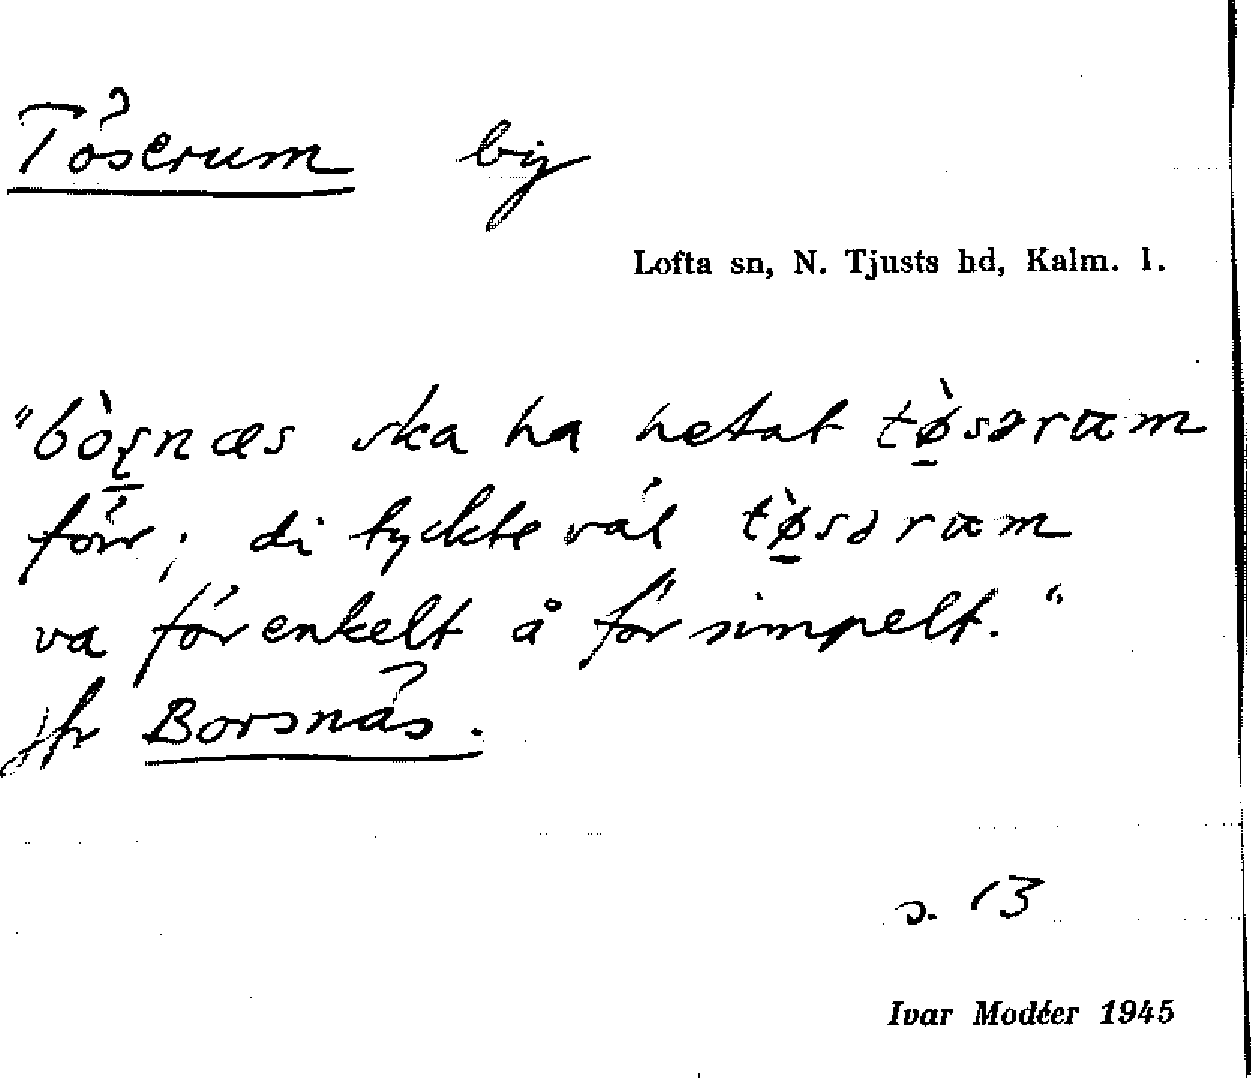 Töserum by
Lofta sn, N. Tjusts hd, Kalm. l.
"bò̱ʂnæs ska ha hetat tø̱̀sərum
förr; di tyckte väl tø̱̀sərum
va för enkelt å för simpelt."
jfr Borsnäs.
s. 13
Ivar Modéer 1945